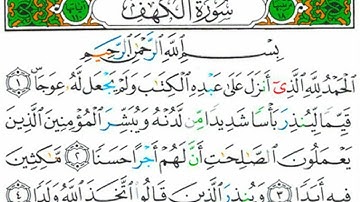 سُورَةُ الكَهْفِ
بِسْمِ اللَّهِ الرَّحْمَٰنِ الرَّحِيمِ
الْحَمْدُ لِلَّهِ الَّذِي أَنْزَلَ عَلَىٰ عَبْدِهِ الْكِتَابَ وَلَمْ يَجْعَلْ لَهُ عِوَجًا ۜ ١
قَيِّمًا لِيُنْذِرَ بَأْسًا شَدِيدًا مِنْ لَدُنْهُ وَيُبَشِّرَ الْمُؤْمِنِينَ الَّذِينَ
يَعْمَلُونَ الصَّالِحَاتِ أَنَّ لَهُمْ أَجْرًا حَسَنًا ٢ مَاكِثِينَ
فِيهِ أَبَدًا ٣ وَيُنْذِرَ الَّذِينَ قَالُوا اتَّخَذَ اللَّهُ وَلَدًا ٤